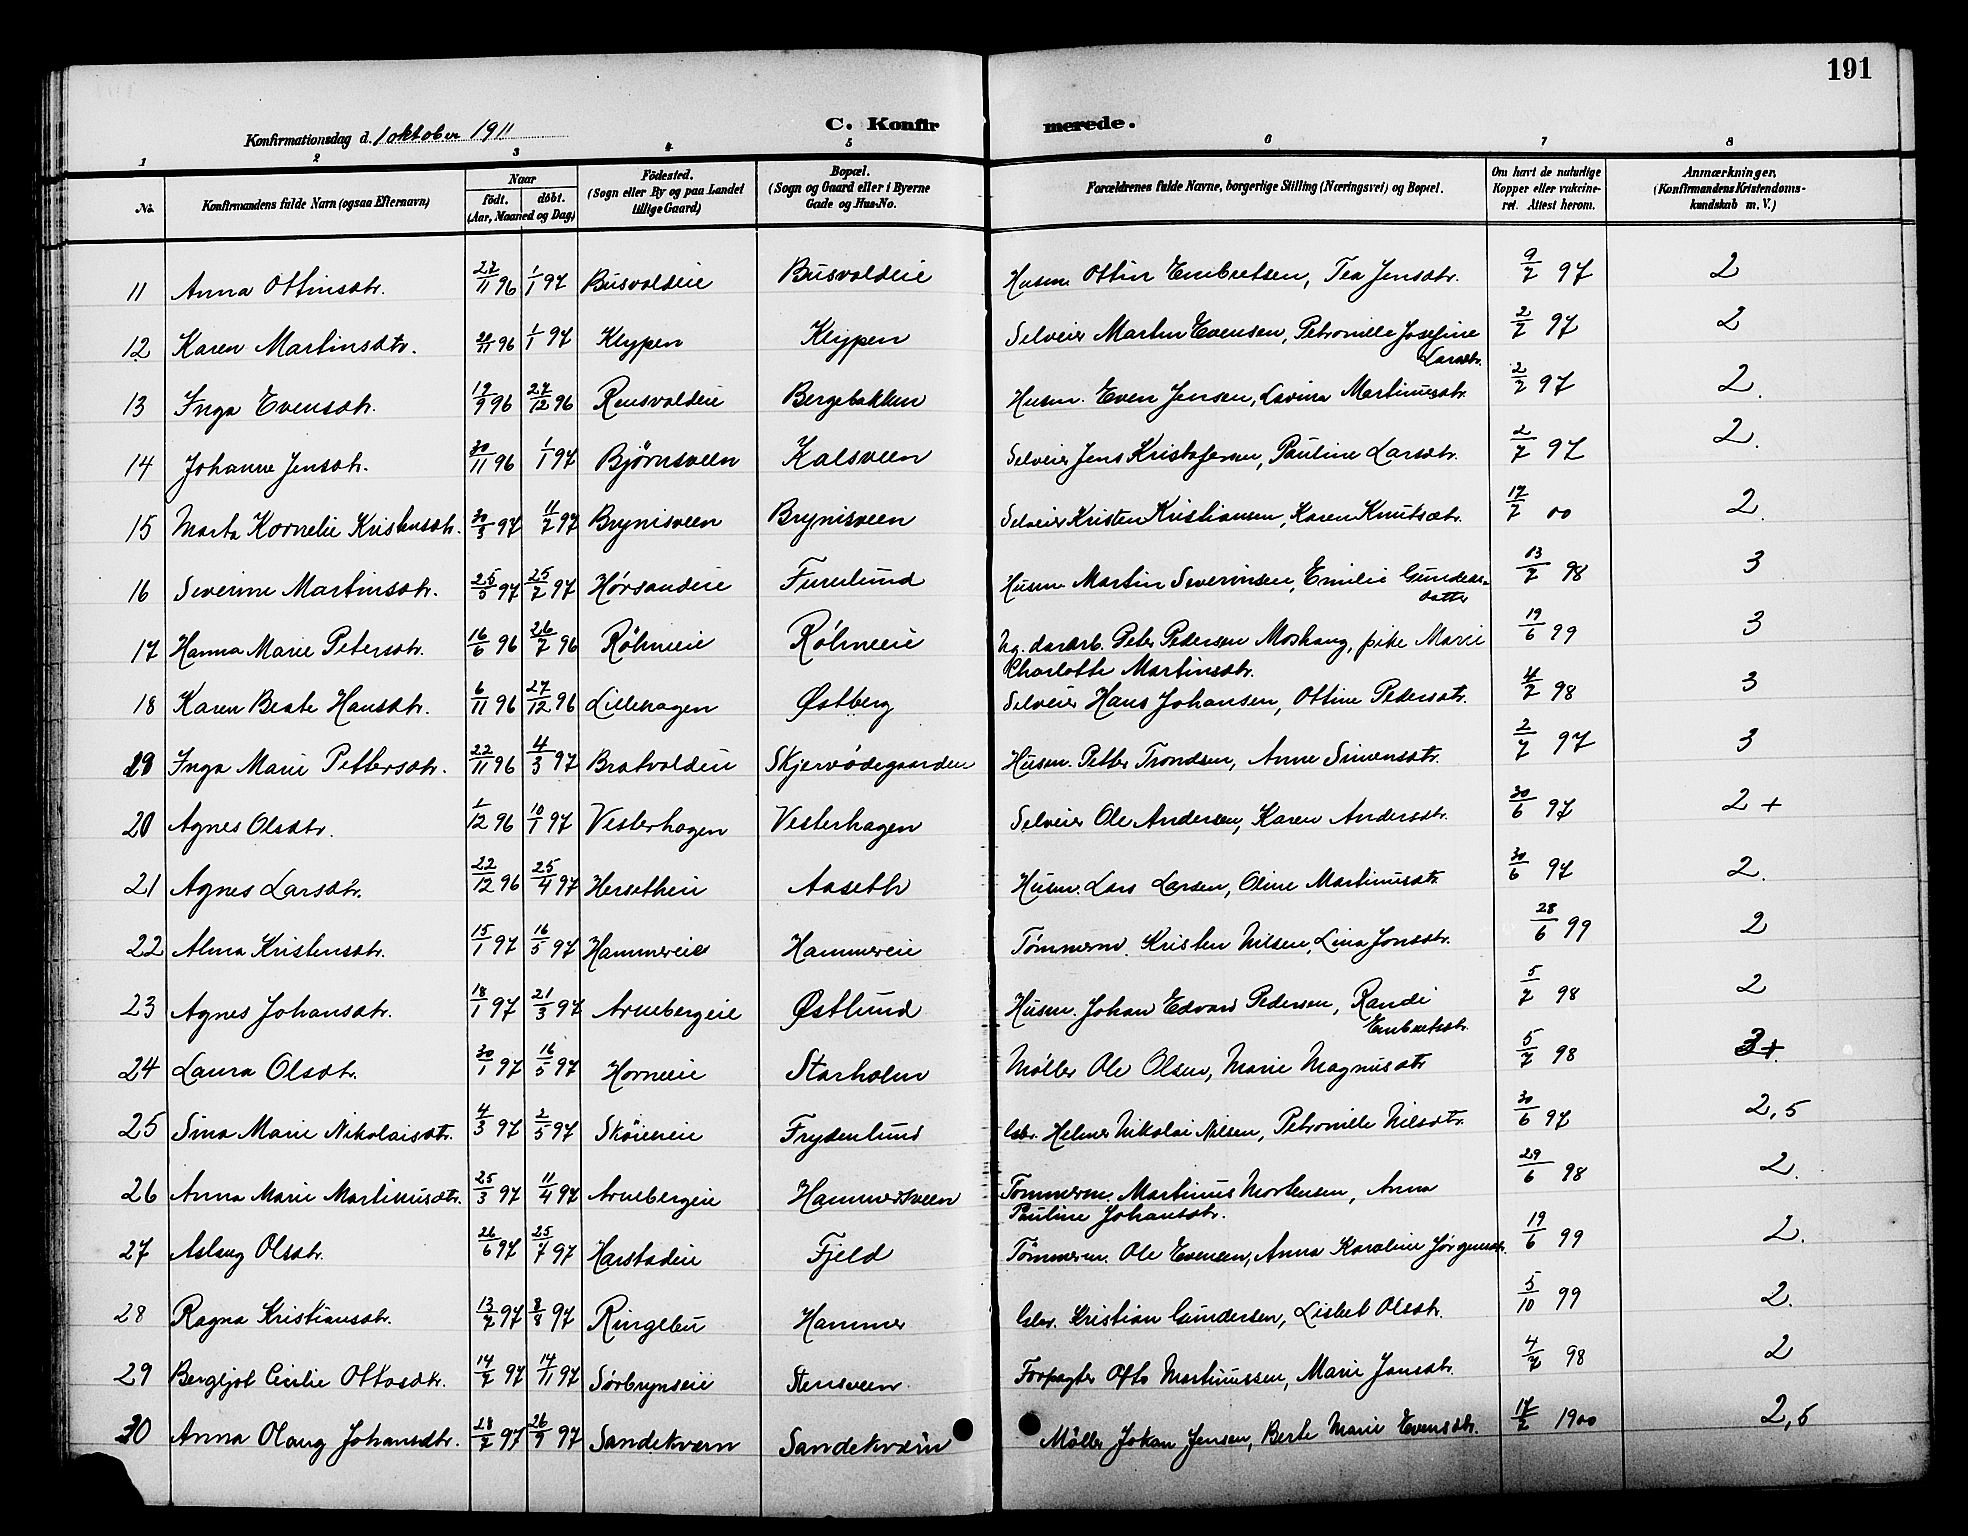 191
C. Konfirmerede.
Konfirmationsdag d. 1 oktober 1911
1 2 3 4 5 6 7 8
No. Konfirmandens fulde Navn (ogsaa Efternavn) Naar født. døbt. (Aar, Maaned og Dag) Födested. (Sogn eller By og paa Landet tillige Gaard) Bopæl. (Sogn og Gaard eller i Byerne Gade og Hus-No. Forældrenes fulde Navne, borgerlige Stilling (Næringsvei) og Bopæl. Om havt de naturlige Kopper eller vaccineret. Attest herom. Anmærkninger, (Konfirmandens Kristendomskundskab m. V.)
11 Anna Ottinsdtr. 22/11 96 1/1 97 Busvoldeie Busvoldeie Husm. Ottin Embretsen, Tea Jensdtr. 9/7 97 2
12 Karen Martinsdtr. 2/11 96 1/1 97 Klypen Klypen Selveier Martin Evensen, Petronille Josefine Larsdtr. 2/7 97 2
13 Inga Evensdtr. 19/9 96 27/12 96 Rensvoldeie Bergebakken Husm. Even Jensen, Lavina Martinusdtr. 2/7 97 2.
14 Johanne Jensdtr. 30/11 96 1/1 97 Bjørnsveen Kalsveen Selveier Jens Kristofersen, Pauline Larsdtr. 2/7 97 2.
15 Marta Kornelie Kristensdtr. 30/3 97 11/7 97 Brynisveen Brynisveen Selveier Kristen Kristiansen, Karen Knutsdtr. 17/7 00 2.
16 Severine Martinsdtr. 25/5 97 25/7 97 Hørsandeie Furulund Husm. Martin Severinsen, Emilie Gundersdatter 13/7 98 3
17 Hanna Marie Petersdtr. 16/6 96 26/7 96 Røhneeie Røhneeie Ug. dararb. Peter Pedersen Moshaug, pike Marie Charlotte Martinsdtr. 19/6 99 3
18 Karen Beate Hansdtr. 6/11 96 27/12 96 Lillehagen Østberg Selveier Hans Johansen, Ottine Pedersdtr. 4/7 98 3
19 Inga Marie Pettersdtr. 22/11 96 4/3 97 Bratvoldeie Skjervødegaarden Husm. Petter Trondsen, Anne Simensdtr. 2/7 97 3
20 Agnes Olsdtr. 1/12 96 10/1 97 Vesterhagen Vesterhagen Selveier Ole Andersen, Karen Andersdtr. 30/6 97 2 +
21 Agnes Larsdtr. 22/12 96 25/4 97 Hersetheie Aaseth Husm. Lars Larsen, Oline Martinusdtr. 30/6 97 2.
22 Alma Kristensdtr. 15/1 97 16/5 97 Hammereie Hammereie Tømmerm. Kristen Nilsen, Lina Jonsdtr. 28/6 99 2
23 Agnes Johansdtr. 18/1 97 21/3 97 Arnebergeie Østlund Husm. Johan Edvard Pedersen, Randi Embretsdtr. 5/7 98 2
24 Laura Olsdtr. 30/1 97 16/5 97 Horneeie Starholm Møller Ole Olsen, Marie Magnusdtr 5/7 98 3+
25 Sina Marie Nikolaisdtr. 4/3 97 2/5 97 Skøieneie Frydenlund Gbr. Helmer Nikolai Nilsen, Petronille Nilsdtr. 30/6 97 2,5
26 Anna Marie Martinusdtr. 25/3 97 11/4 97 Arnebergeie Hammersveen Tømmerm. Martinus Mortensen, Anna Pauline Johansdtr. 29/6 98 2.
27 Aslaug Olsdtr. 26/6 97 25/7 97 Harstadeie Fjeld Tømmerm. Ole Evensen, Anna Karoline Jørgensdtr. 19/6 99 2.
28 Ragna Kristiansdtr. 13/7 97 8/8 97 Ringebu Hammer Gbr. Kristian Gundersen, Lisbet Olsdtr. 5/10 99 2.
29 Bergljot Cecilie Ottosdtr. 14/7 97 14/11 97 Sørbrynseie Stensveen Forpagter Otto Martinussen, Marie Jansdtr. 4/7 98 2
30 Anna Olaug Johansdtr. 28/7 97 26/9 97 Sandekværn Sandekværn Møller Johan Jensen, Berte Marie Evensdtr. 17/7 1900 2,5